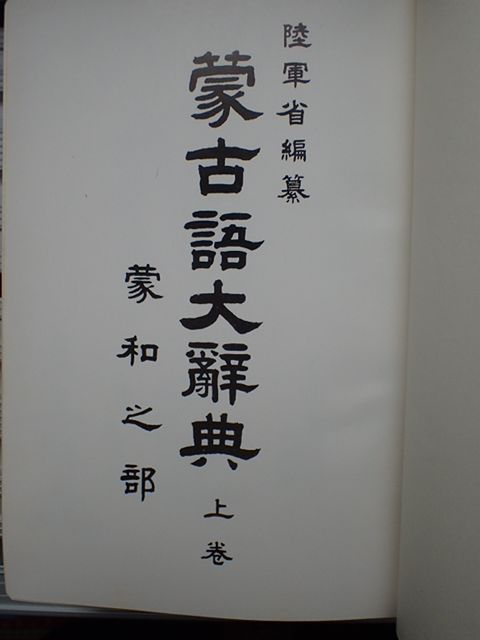 陸軍省編纂
蒙古語大辭典 上卷
蒙和之部